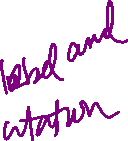 label and
citation